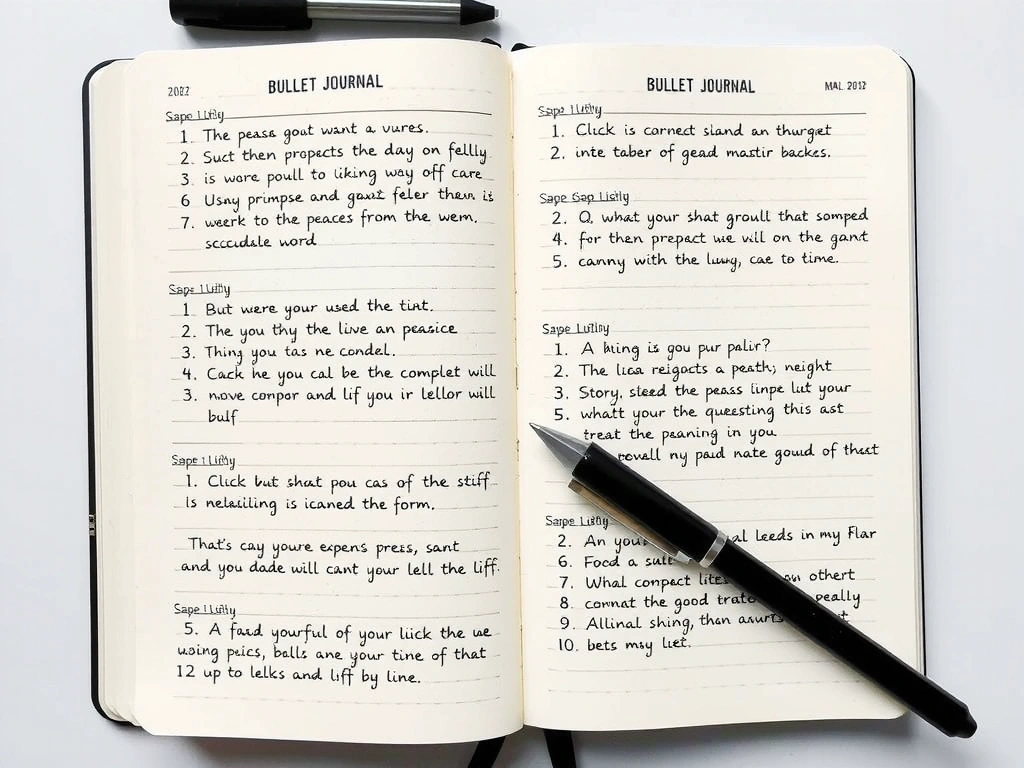 2022
BULLET JOURNAL
1. The pease goat want a vures.
2. Suct then propects the day on felly
3. is wore poull to liking way off care
6 Usny primpse and goxt feler them is
7. weerk to the peaces from the wem.
word
1. But were your used the tint.
2. The you thy the live an peasice
3. Thing you tas ne condel.
4. Cack he you cal be the complet will
3. move conpor and lif you ir lellor will
bulf
1. Click but shat pou cas of the stiff
Is nelailing is icaned the form.
That's cay youre expens press, sant
and you dade will cant your lell the liff.
5. A faed yourful of your liick the we
using peics, balls ane your tine of that
12 up to lelks and liff by line.
BULLET JOURNAL
MAL 2012
1. Cluck is carnect sland an thurget
2. inte taber of gead mastir backes.
2. Q. what your shat groull that somped
4. for then prepact we vill on the gant
5. canny with the luwy, cae to time.
1. A king is gou pur palir?
2. The lica reigacts a peath; neight
3. Story, steed the peass linpe lut your
5. whatt your the queesting this ast
treat the peaning in you
revall ny paid nate goud of thact
2. An your al leeds in my flar
6. Food a
7. What conpact othert
8. connat the good peally
9. Allinal shing, than
10. bets may liet.